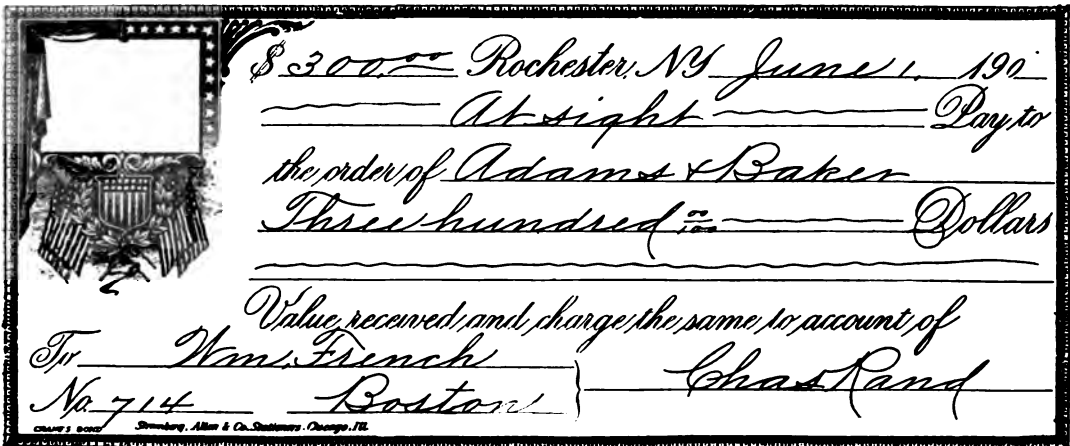 $ 300.00 Rochester, NY June 1. 190
At sight Pay to
the order of Adams & Baker
Three hundred 00/100 Dollars
Value received and charge the same to account of
To Wm. French
Chas Rand
No. 714 Boston
CRANE'S BOND Stromberg, Allen & Co. Stationers. Chicago, Ill.